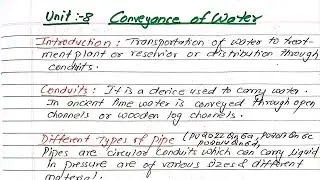 Unit :-8 Conveyance of Water
Introduction : Transportation of water to treat-
ment plant or reservior or distribution through
conduits.
Conduits : It is a device used to carry water.
In ancient time water is conveyed through open
channels or wooden log channels.
Different Types of pipe
Pipes are circular conduits which can carry liquid
in pressure are of various sizes & different
material.